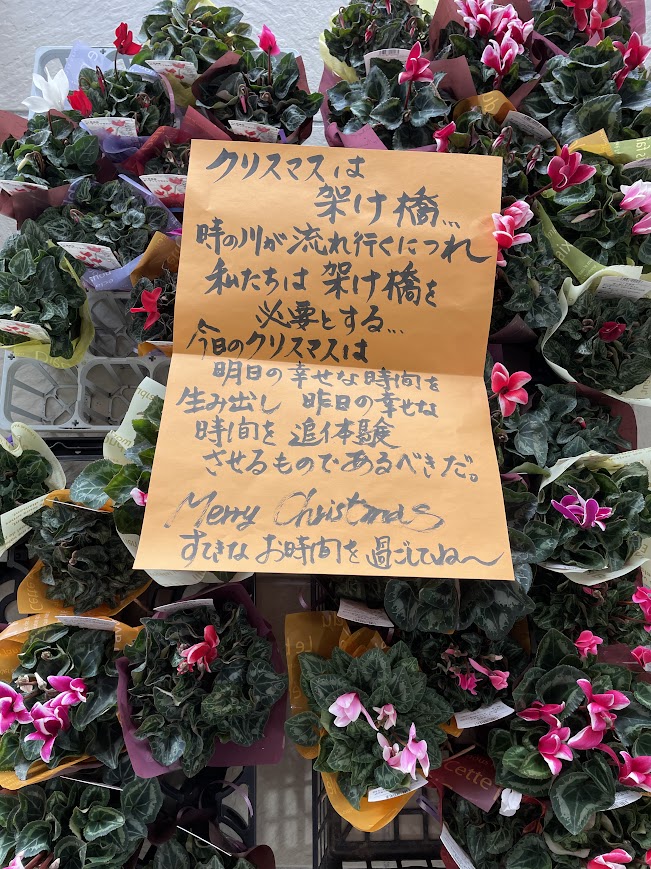 クリスマスは
架け橋...
時の川が流れ行くにつれ
私たちは架け橋を
必要とする...
今日のクリスマスは
明日の幸せな時間を
生み出し 昨日の幸せな
時間を追体験
させるものであるべきだ。
Merry Christmas
すてきなお時間を過ごしてね〜